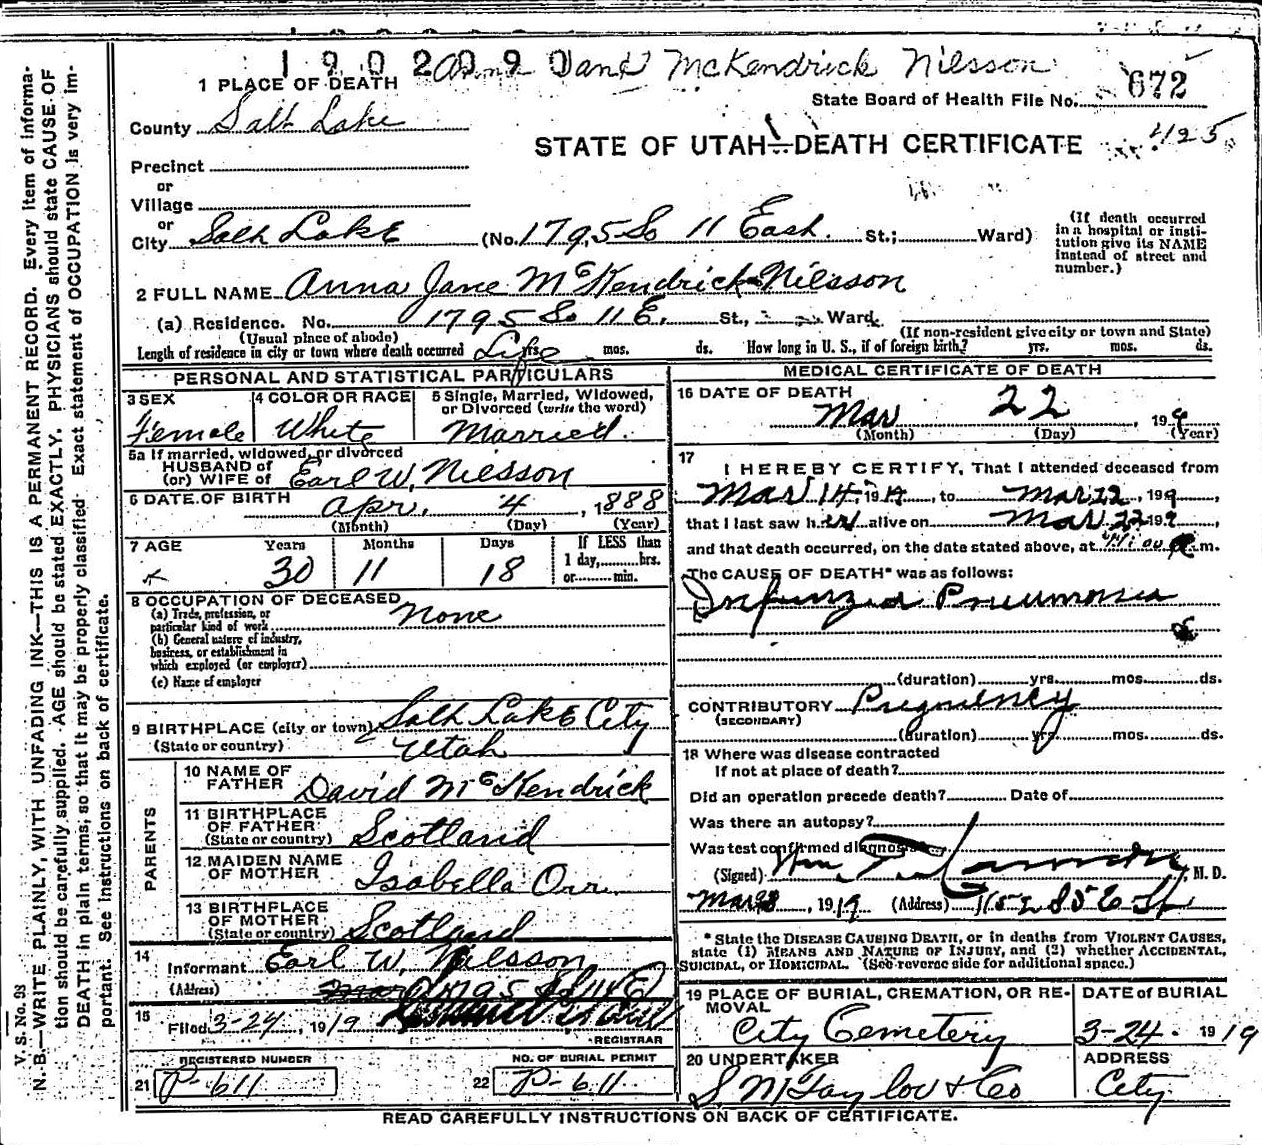 1902090 Anna Jane McKendrick Nilsson
1 PLACE OF DEATH
State Board of Health File No. 672
County Salt Lake
STATE OF UTAH—DEATH CERTIFICATE 425
Precinct
or
Village
or
City Salt Lake (No. 1795 So 11 East. St.; Ward)
(If death occurred in a hospital or insti-
tution give its NAME
instead of street and
number.)
2 FULL NAME Anna Jane McKendrick Nilsson
(a) Residence. No. 1795 So 11 E. St., Ward
(Usual place of abode) (If non-resident give city or town and State)
Length of residence in city or town where death occurred Life yrs. mos. ds. How long in U. S., if of foreign birth? yrs. mos. ds.
PERSONAL AND STATISTICAL PARTICULARS
3 SEX Female
4 COLOR OR RACE White
5 Single, Married, Widowed,
or Divorced (write the word)
Married.
5a If married, widowed, or divorced
HUSBAND of
(or) WIFE of Earl W. Nilsson
6 DATE OF BIRTH Apr. 4, 1888
(Month) (Day) (Year)
7 AGE Years Months Days If LESS than
30 11 18 1 day, hrs.
or min.
8 OCCUPATION OF DECEASED None
(a) Trade, profession, or
particular kind of work
(b) General nature of industry,
business, or establishment in
which employed (or employer)
(c) Name of employer
9 BIRTHPLACE (city or town) Salt Lake City
(State or country) Utah
PARENTS
10 NAME OF
FATHER David McKendrick
11 BIRTHPLACE
OF FATHER
(State or country) Scotland
12 MAIDEN NAME
OF MOTHER Isabella Orr
13 BIRTHPLACE
OF MOTHER
(State or country) Scotland
14
Informant Earl W. Nilsson
(Address) 1795 So 11 E
15
Filed 3-24, 1919
REGISTRAR
REGISTERED NUMBER NO. OF BURIAL PERMIT
21 P-611 22 P-611
MEDICAL CERTIFICATE OF DEATH
16 DATE OF DEATH
Mar 22, 199
(Month) (Day) (Year)
17
I HEREBY CERTIFY, That I attended deceased from
Mar 14, 1919, to Mar 22, 199,
that I last saw her alive on Mar 22 199,
and that death occurred, on the date stated above, at m.
The CAUSE OF DEATH* was as follows:
Influenza Pneumonia
(duration) yrs. mos. ds.
CONTRIBUTORY Pregnency
(SECONDARY)
(duration) yrs. mos. ds.
18 Where was disease contracted
If not at place of death?
Did an operation precede death? Date of
Was there an autopsy?
Was test confirmed diagnosis
(Signed) Wm, M. D.
Mar 23, 1919 (Address) 1152 S 5 E St
* State the DISEASE CAUSING DEATH, or in deaths from VIOLENT CAUSES,
state (1) MEANS AND NATURE OF INJURY, and (2) whether ACCIDENTAL,
SUICIDAL, or HOMICIDAL. (See reverse side for additional space.)
19 PLACE OF BURIAL, CREMATION, OR RE-
MOVAL
City Cemetery
DATE of BURIAL
3-24- 1919
20 UNDERTAKER
S M Taylor & Co
ADDRESS
City
READ CAREFULLY INSTRUCTIONS ON BACK OF CERTIFICATE.
V. S. No. 93
N. B.—WRITE PLAINLY, WITH UNFADING INK—THIS IS A PERMANENT RECORD. Every item of informa-
tion should be carefully supplied. AGE should be stated EXACTLY. PHYSICIANS should state CAUSE OF
DEATH in plain terms, so that it may be properly classified. Exact statement of OCCUPATION is very im-
portant. See instructions on back of certificate.